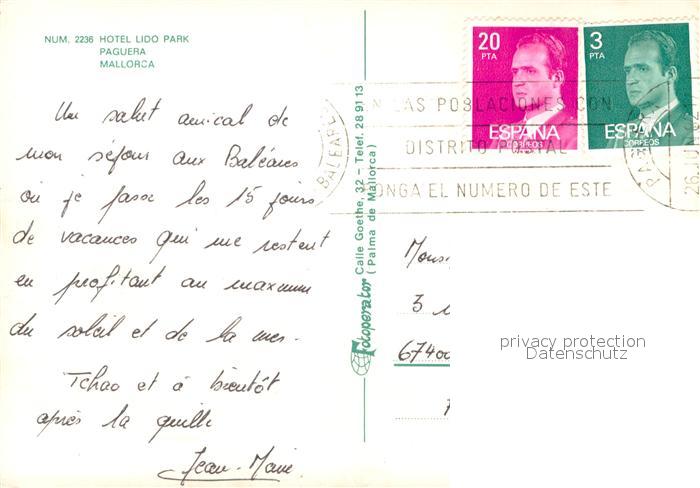 NUM. 2236 HOTEL LIDO PARK
PAGUERA
MALLORCA
Un salut amical de
mon séjour aux Baléares
où je passe les 15 jours
de vacances qui me restent
en profitant au maximum
du soleil et de la mer.
Tchao et à bientôt
après la quille
Jean-Marie
Fotoperator Calle Goethe, 32 - Telef. 28 91 13
(Palma de Mallorca)
20
PTA
ESPAÑA
CORREOS
3
PTA
ESPAÑA
CORREOS
BALEARES
EN LAS POBLACIONES CON
DISTRITO POSTAL
PONGA EL NUMERO DE ESTE
Monsi
3
67400
privacy protection
Datenschutz